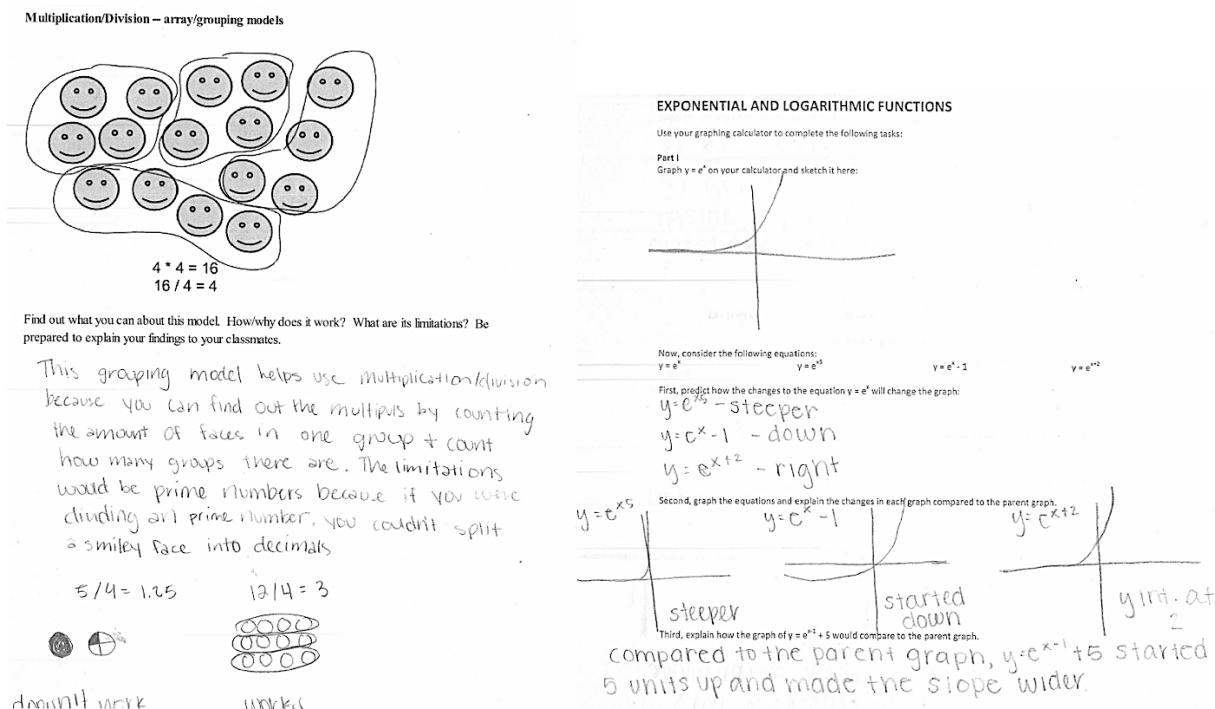 Multiplication/Division – array/grouping models
4 * 4 = 16
16 / 4 = 4
Find out what you can about this model. How/why does it work? What are its limitations? Be
prepared to explain your findings to your classmates.
This grouping model helps use multiplication/division
because you can find out the multipuls by counting
the amount of faces in one group + count
how many groups there are. The limitations
would be prime numbers because if you were
dividing an prime number, you couldn't split
a smiley face into decimals
5/4 = 1.25 12/4 = 3
doesn't work works
EXPONENTIAL AND LOGARITHMIC FUNCTIONS
Use your graphing calculator to complete the following tasks:
Part I
Graph y = eˣ on your calculator and sketch it here:
Now, consider the following equations:
y = eˣ y = eˣ⁵ y = eˣ - 1 y = eˣ⁺²
First, predict how the changes to the equation y = eˣ will change the graph:
y=eˣ⁵ - steeper
y=eˣ-1 - down
y=eˣ⁺² - right
Second, graph the equations and explain the changes in each graph compared to the parent graph.
y=eˣ⁵ y=eˣ-1 y=eˣ⁺²
steeper started down y int. at 2
Third, explain how the graph of y = eˣ⁻¹ + 5 would compare to the parent graph.
compared to the parent graph, y=eˣ⁻¹+5 started
5 units up and made the slope wider.